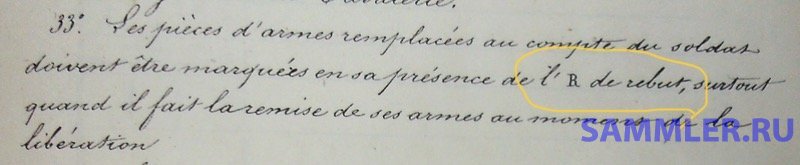 Cavalerie.
33°. Les pièces d'armes remplacées au compte du soldat
doivent être marquées en sa présence de l'R de rebut, surtout
quand il fait la remise de ses armes au moment de la
libération
SAMMLER.RU